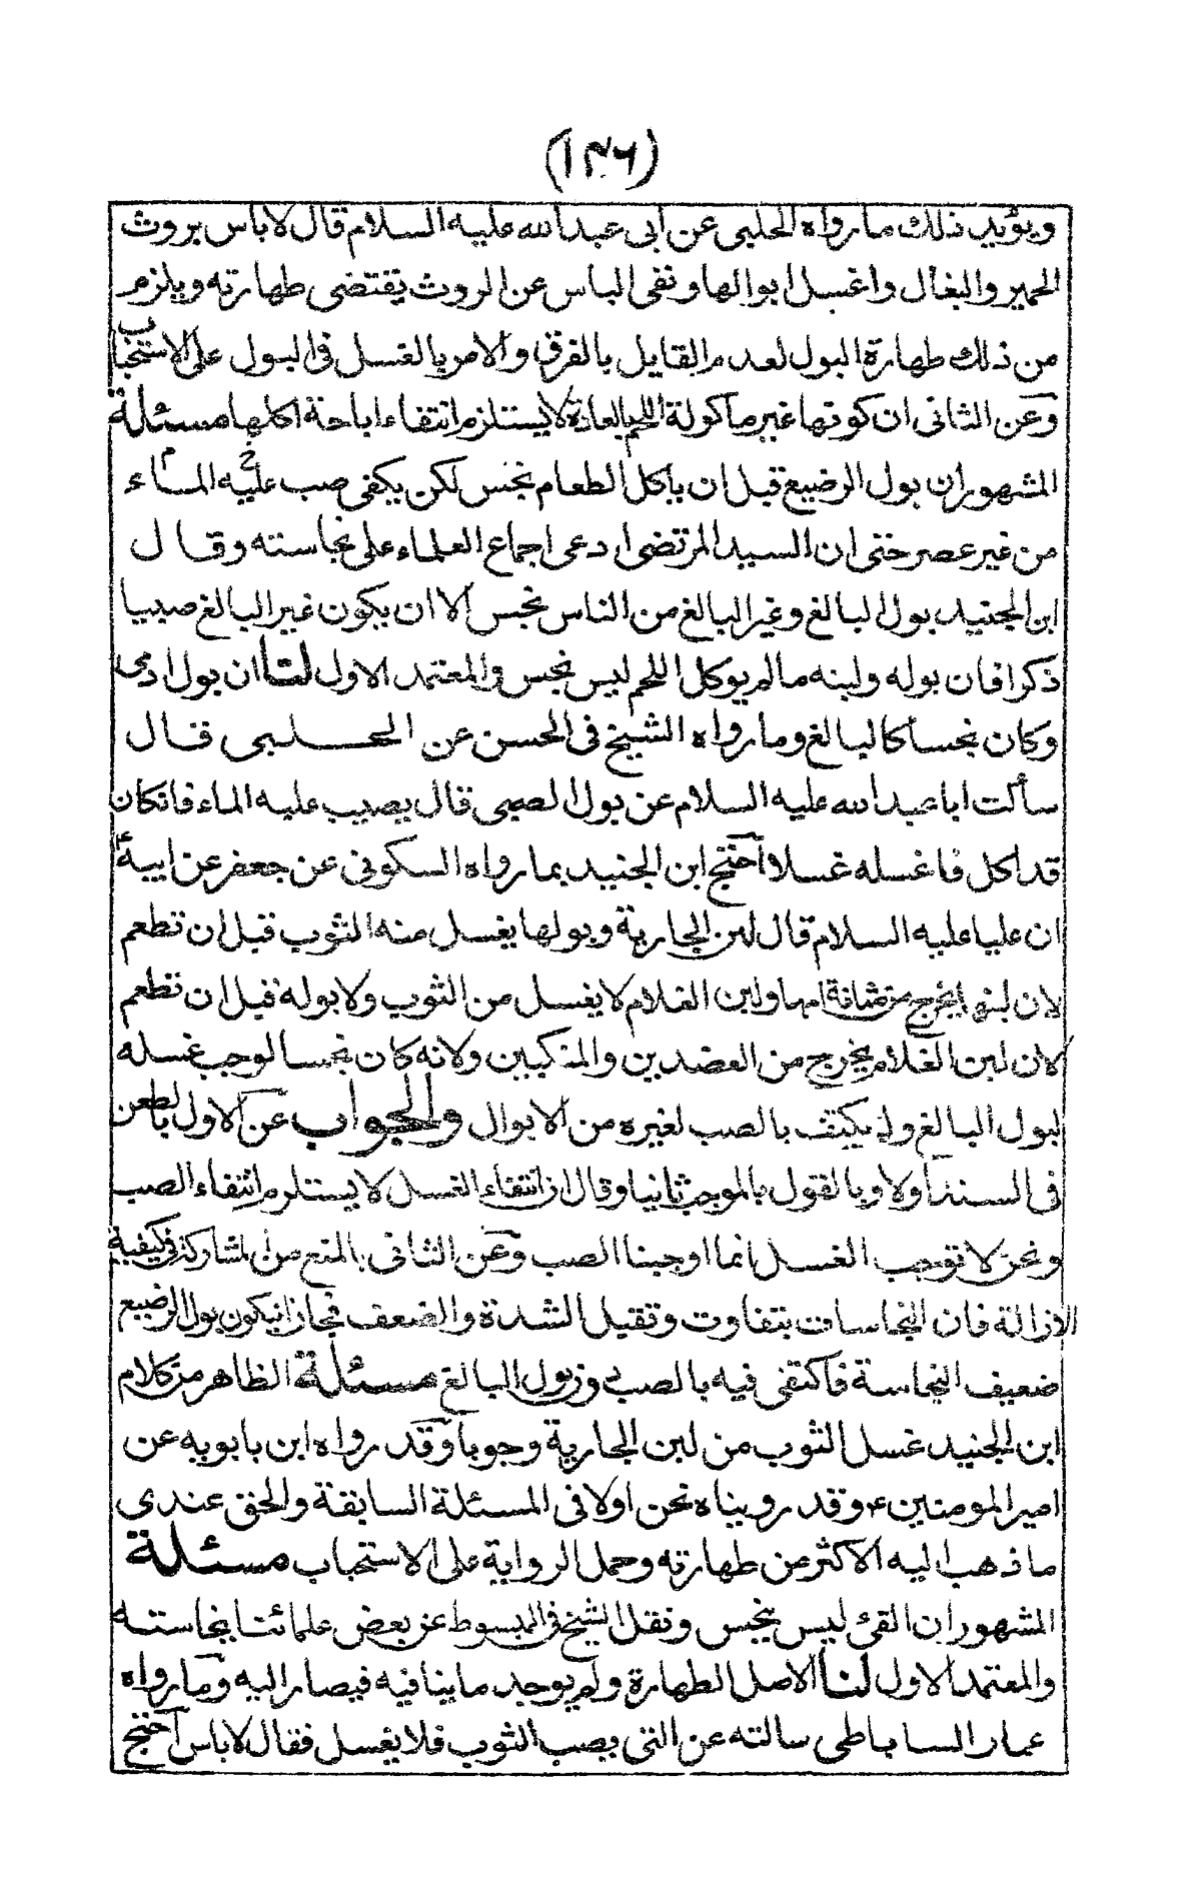 (١٣٦)
ويؤيد ذلك ما رواه الحلبي عن ابي عبد الله عليه السلام قال لا باس بروث
الحمير والبغال واغسل ابوالها ونفى الباس عن الروث يقتضى طهارته ويلزم
من ذلك طهارة البول لعدم القايل بالفرق والامر بالغسل فى البول على الاستحباب
وعن الثانى ان كونها غير ماكولة اللحم بالعادة لا يستلزم انتفاء اباحة اكلها مسئلة
المشهور ان بول الرضيع قبل ان ياكل الطعام نجس لكن يكفى صب عليه الماء
من غير عصر حتى ان السيد المرتضى ادعى اجماع العلماء على نجاسته وقال
ابن الجنيد بول البالغ وغير البالغ من الناس نجس الا ان يكون غير البالغ صبيا
ذكرا فان بوله ولبنه ما لم يوكل اللحم ليس نجس والمعتمد الاول لنا ان بول ادمى
وكان نجسا كالبالغ وما رواه الشيخ فى الحسن عن الحلبى قال
سألت ابا عبد الله عليه السلام عن بول الصبى قال يصيب عليه الماء فان كان
قد اكل فاغسله غسلا احتج ابن الجنيد بما رواه السكونى عن جعفر عن ابيه ع
ان عليا عليه السلام قال لبن الجارية وبولها يغسل منه الثوب قبل ان تطعم
لان لبنها يخرج من مثانة امها ولبن الغلام لا يغسل من الثوب ولا بوله قبل ان تطعم
لان لبن الغلام يخرج من العضدين والمنكبين ولانه كان نجسا لوجب غسله
لبول البالغ ولم يكتف بالصب لغيره من الابوال والجواب عن الاول بالطعن
فى السند اولا وبالقول بالموجب ثانيا وقال ان انتفاء الغسل لا يستلزم انتفاء الصب
ونحن لا نوجب الغسل انما اوجبنا الصب وعن الثانى بالمنع من المشاركة فى كيفية
الازالة فان النجاسات بتفاوت وتقيل الشدة والضعف فجاز ان يكون بول الرضيع
ضعيف النجاسة فاكتفى فيه بالصب دون بول البالغ مسئلة الظاهر من كلام
ابن الجنيد غسل الثوب من لبن الجارية وجوبا وقد رواه ابن بابويه عن
امير المومنين ع وقد روبناه نحن اولا فى المسئلة السابقة والحق عندى
ما ذهب اليه الاكثر من طهارته وحمل الرواية على الاستحباب مسئلة
المشهور ان القئ ليس بنجس ونقل الشيخ فى المبسوط عن بعض علمائنا نجاسته
والمعتمد الاول لنا الاصل الطهارة ولم يوجد ما ينافيه فيصار اليه وما رواه
عمار الساباطى سالته عن القى يصب الثوب فلا يغسل فقال لا باس احتج